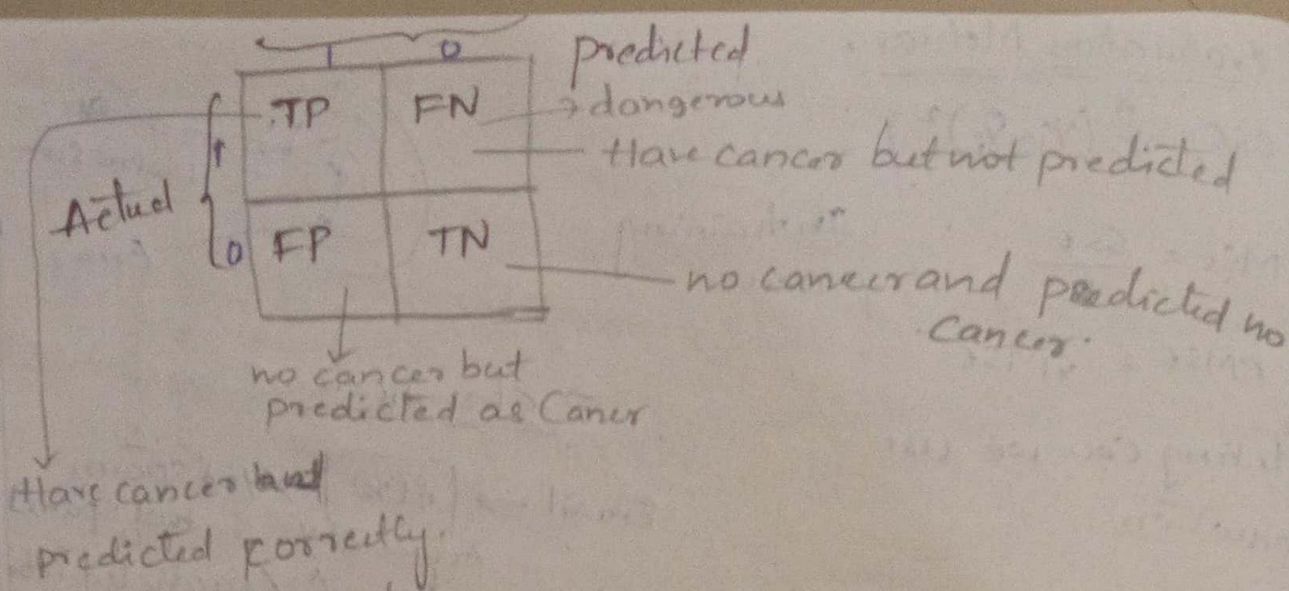 1 0 predicted
TP FN → dangerous
1
Have cancer but not predicted
Actual
0 FP TN
no cancer and predicted no
cancer.
no cancer but
predicted as Cancr
Have cancer and
predicted correctly.